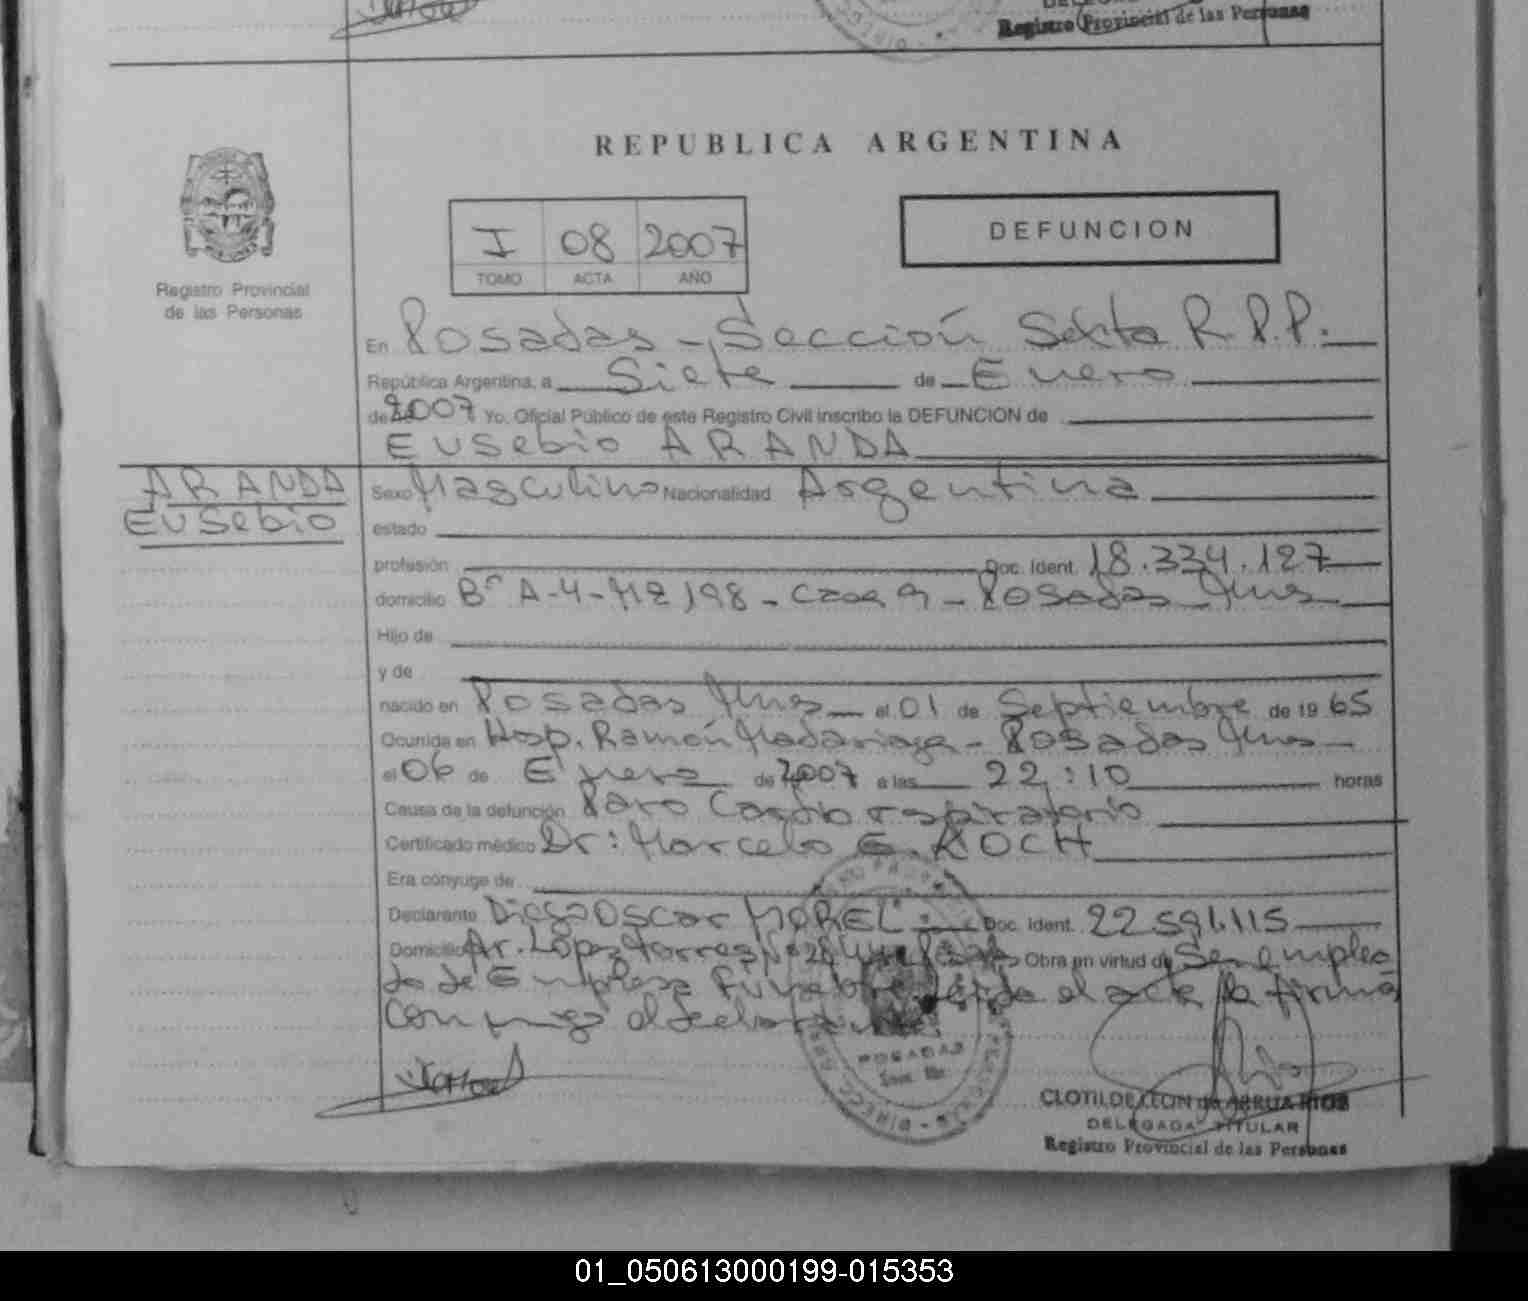 Registro Provincial de las Personas
REPUBLICA ARGENTINA
Registro Provincial
de las Personas
I 08 2007
TOMO ACTA AÑO
DEFUNCION
En Posadas - Sección Sexta R.P.P.
República Argentina, a Siete de Enero
de 2007 Yo, Oficial Público de este Registro Civil inscribo la DEFUNCION de
EUSebio ARANDA
ARANDA
EUSebio
Sexo Masculino Nacionalidad Argentina
estado
profesión Doc. Ident. 18.334.127
domicilio Bº A-4-MZ 198 - Casa 9 - Posadas Mnes
Hijo de
y de
nacido en Posadas Mnes el 01 de Septiembre de 1965
Ocurrida en Hosp. Ramón Madariaga - Posadas Mnes
el 06 de Enero de 2007 a las 22:10 horas
Causa de la defunción Paro Cardiorespiratorio
Certificado médico Dr: Marcelo E. KOCH
Era conyuge de
Declarante Diego Oscar MOREL Doc. Ident. 22.591.115
Domicilio Av. López Torres Nº Obra en virtud de Ser emplea
do de Empresa Fúnebre el acta la firma
conmigo el declarante
POSADAS
CLOTILDE LEON de ARRUA RIOS
DELEGADA TITULAR
Registro Provincial de las Personas
01_050613000199-015353